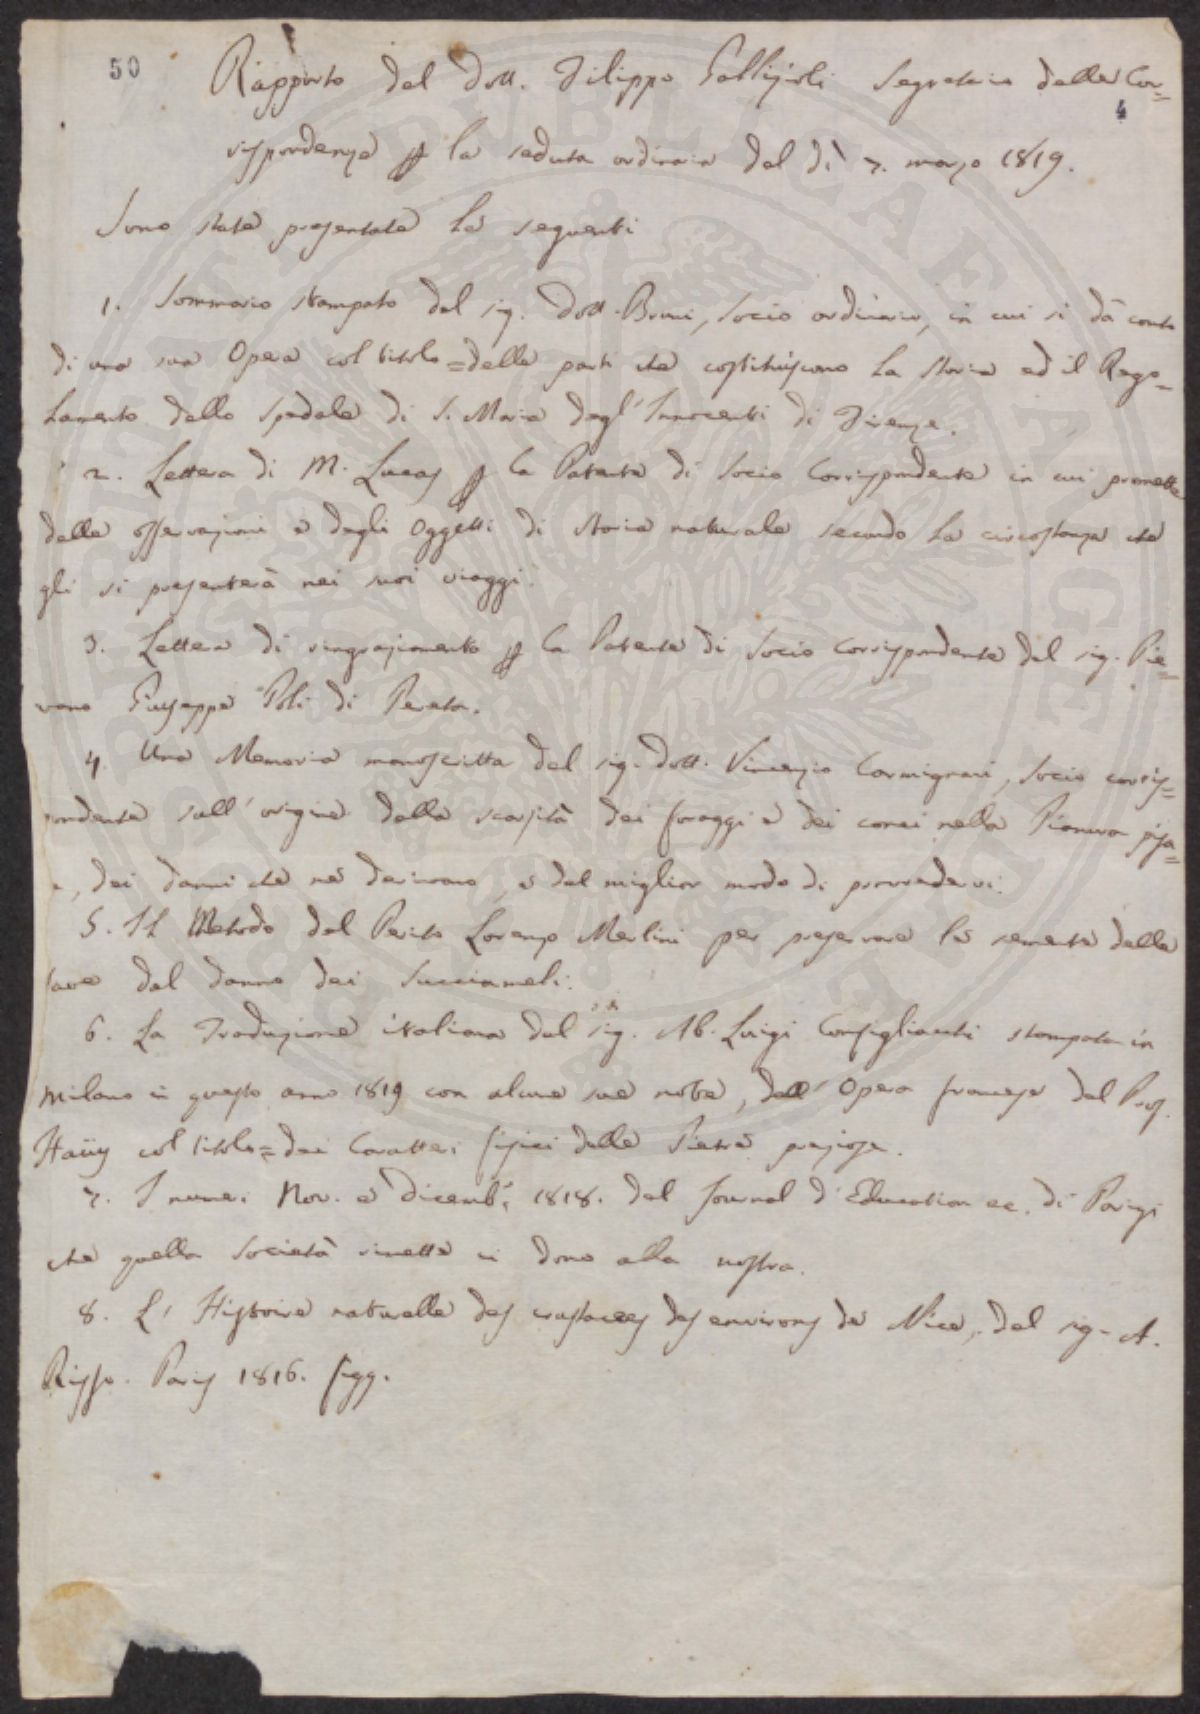 50
Rapporto del Dott. Filippo Gallizioli Segretario della Cor=
4
rispondenza p la seduta ordinaria del dì 7. marzo 1819.
Sono state presentate le seguenti
1. Sommario stampato del sig. Dott. Bruni, Socio ordinario, in cui si dà conto
di una sua Opera col titolo = delle parti che costituiscono la Storia ed il Rego=
lamento dello Spedale di S. Maria degl'Innocenti di Firenze.
2. Lettera di M. Lucas p la Patente di Socio Corrispondente in cui promette
delle osservazioni e degli oggetti di Storia naturale secondo la circostanza che
gli si presenterà nei suoi viaggi.
3. Lettera di ringraziamento p la Patente di Socio Corrispondente del sig. Pie=
vano Giuseppe Poli di Pereta.
4. Una Memoria manoscritta del sig. Dott. Vincenzio Carmignani, Socio corris=
pondente sull'origine della scarsità dei foraggi e dei conci nella Pianura pisa=
, dei danni che ne derivano, e del miglior modo di provvedervi.
5. Il Metodo del Perito Lorenzo Merlini per preservare le sementa delle
fave dal danno dei Succiameli.
6. La Traduzione italiana del sig. Ab. Luigi Configliachi stampata in
Milano in questo anno 1819 con alcune sue note, dell'Opera francese del Prof.
Haüy col titolo = dei Caratteri fisici delle Pietre preziose.
7. I numeri Nov. e Dicemb. 1818. del Journal d'Education ec. di Parigi
che quella Società rimette in dono alla nostra.
8. L'Histoire naturelle des crustacees des environs de Nice, del sig. A.
Risso. Paris 1816. figg.